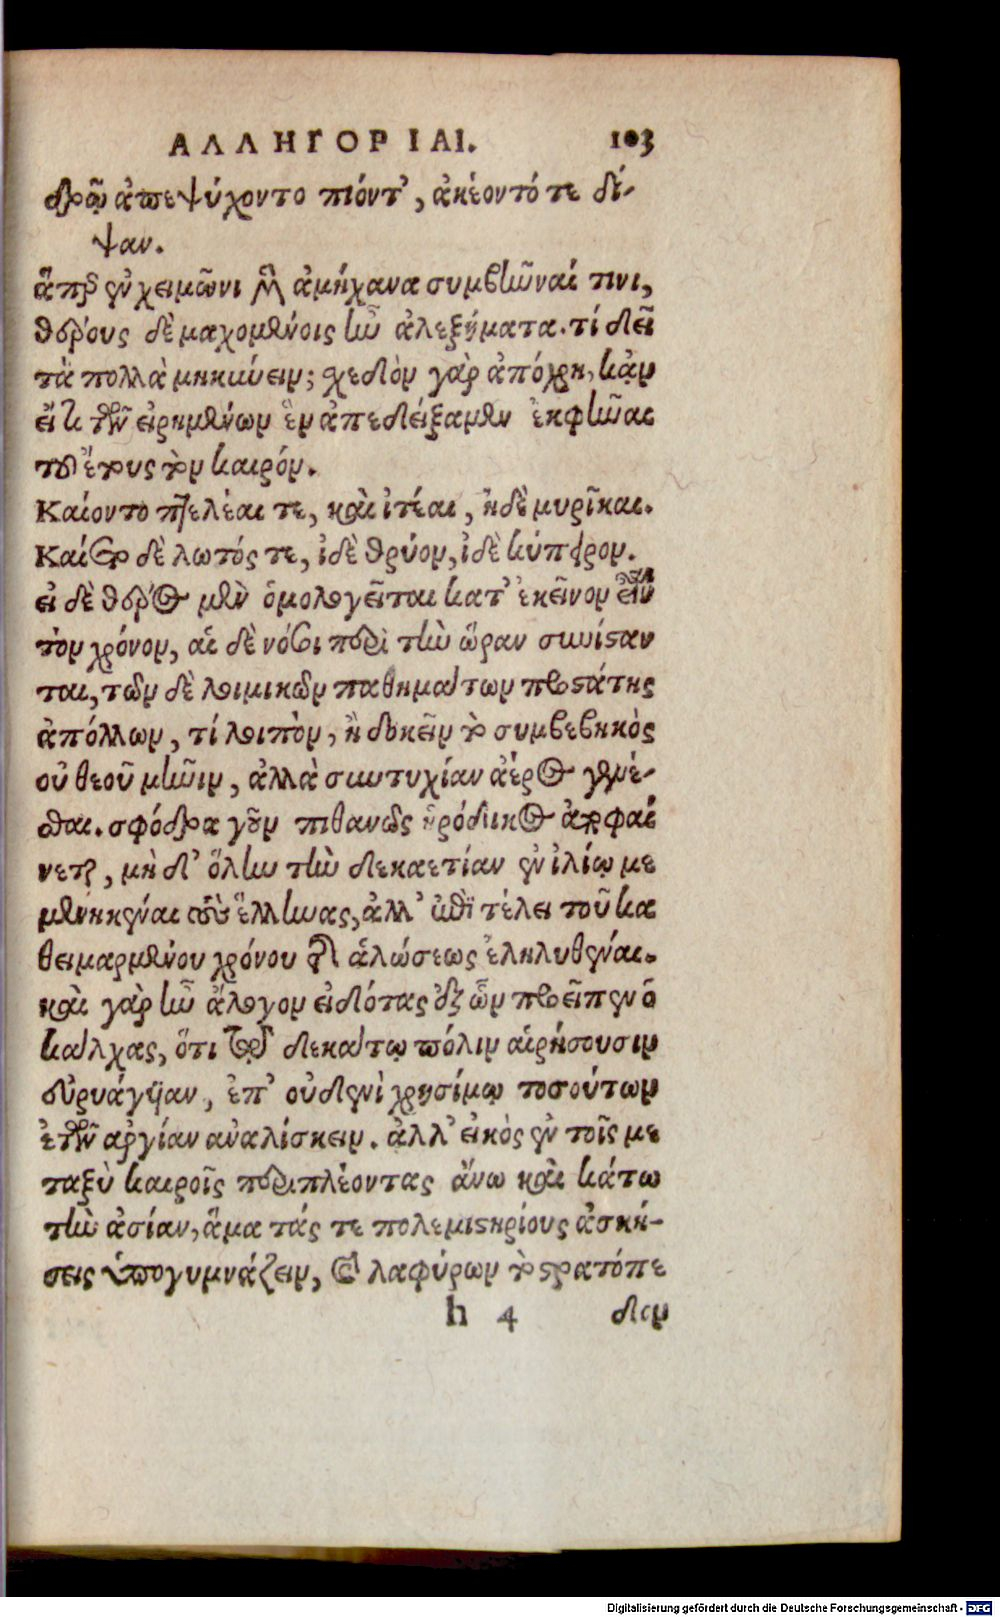 ΑΛΛΗΓΟΡΙΑΙ. 103
δρῶ ἀπεψύχοντο πιόντ', ἀκέοντό τε δί-
ψαν.
ἅπερ ἐν χειμῶνι ἦν ἀμήχανα συμβῆναί τινι,
θέρους δὲ μαχομένοις ἦν ἀλεξήματα. τί δεῖ
τὰ πολλὰ μηκύνειν; σχεδὸν γὰρ ἀπόχρη, κἂν
εἴ τι τῶν εἰρημένων ἓν ἀπεδείξαμεν ἐκφῆναι
τοῦ ἔτους τὸν καιρόν.
Καίοντο πτελέαι τε, καὶ ἰτέαι, ἠδὲ μυρῖκαι.
Καίετο δὲ λωτός τε, ἰδὲ θρύον, ἰδὲ κύπειρον.
εἰ δὲ θέρος μὲν ὁμολογεῖται κατ' ἐκεῖνον εἶναι
τὸν χρόνον, αἱ δὲ νόσοι περὶ τὴν ὥραν συνίσταν
ται, τῶν δὲ λοιμικῶν παθημάτων προστάτης
ἀπόλλων, τί λοιπὸν, ἢ δοκεῖν τὸ συμβεβηκὸς
οὐ θεοῦ μῆνιν, ἀλλὰ συντυχίαν ἀέρος γενέ-
σθαι. σφόδρα γοῦν πιθανῶς ἡρόδικος ἀποφαί
νεται, μὴ δ' ὅλην τὴν δεκαετίαν ἐν ἰλίῳ με
μενηκέναι τοὺς ἕλληνας, ἀλλ' ἐπὶ τέλει τοῦ κα
θειμαρμένου χρόνου τῆς ἁλώσεως ἐληλυθέναι.
καὶ γὰρ ἦν ἄλογον εἰδότας ἐξ ὧν προεῖπεν ὁ
κάλχας, ὅτι τῷ δεκάτῳ πόλιν αἱρήσουσιν
εὐρυάγυιαν, ἐπ' οὐδενὶ χρησίμῳ τοσούτων
ἐτῶν ἀργίαν ἀναλίσκειν. ἀλλ' εἰκὸς ἐν τοῖς με
ταξὺ καιροῖς περιπλέοντας ἄνω καὶ κάτω
τὴν ἀσίαν, ἅμα τάς τε πολεμιστηρίους ἀσκή-
σεις ὑπογυμνάζειν, καὶ λαφύρων τὸ στρατόπε
h 4 δον
Digitalisierung gefördert durch die Deutsche Forschungsgemeinschaft - DFG